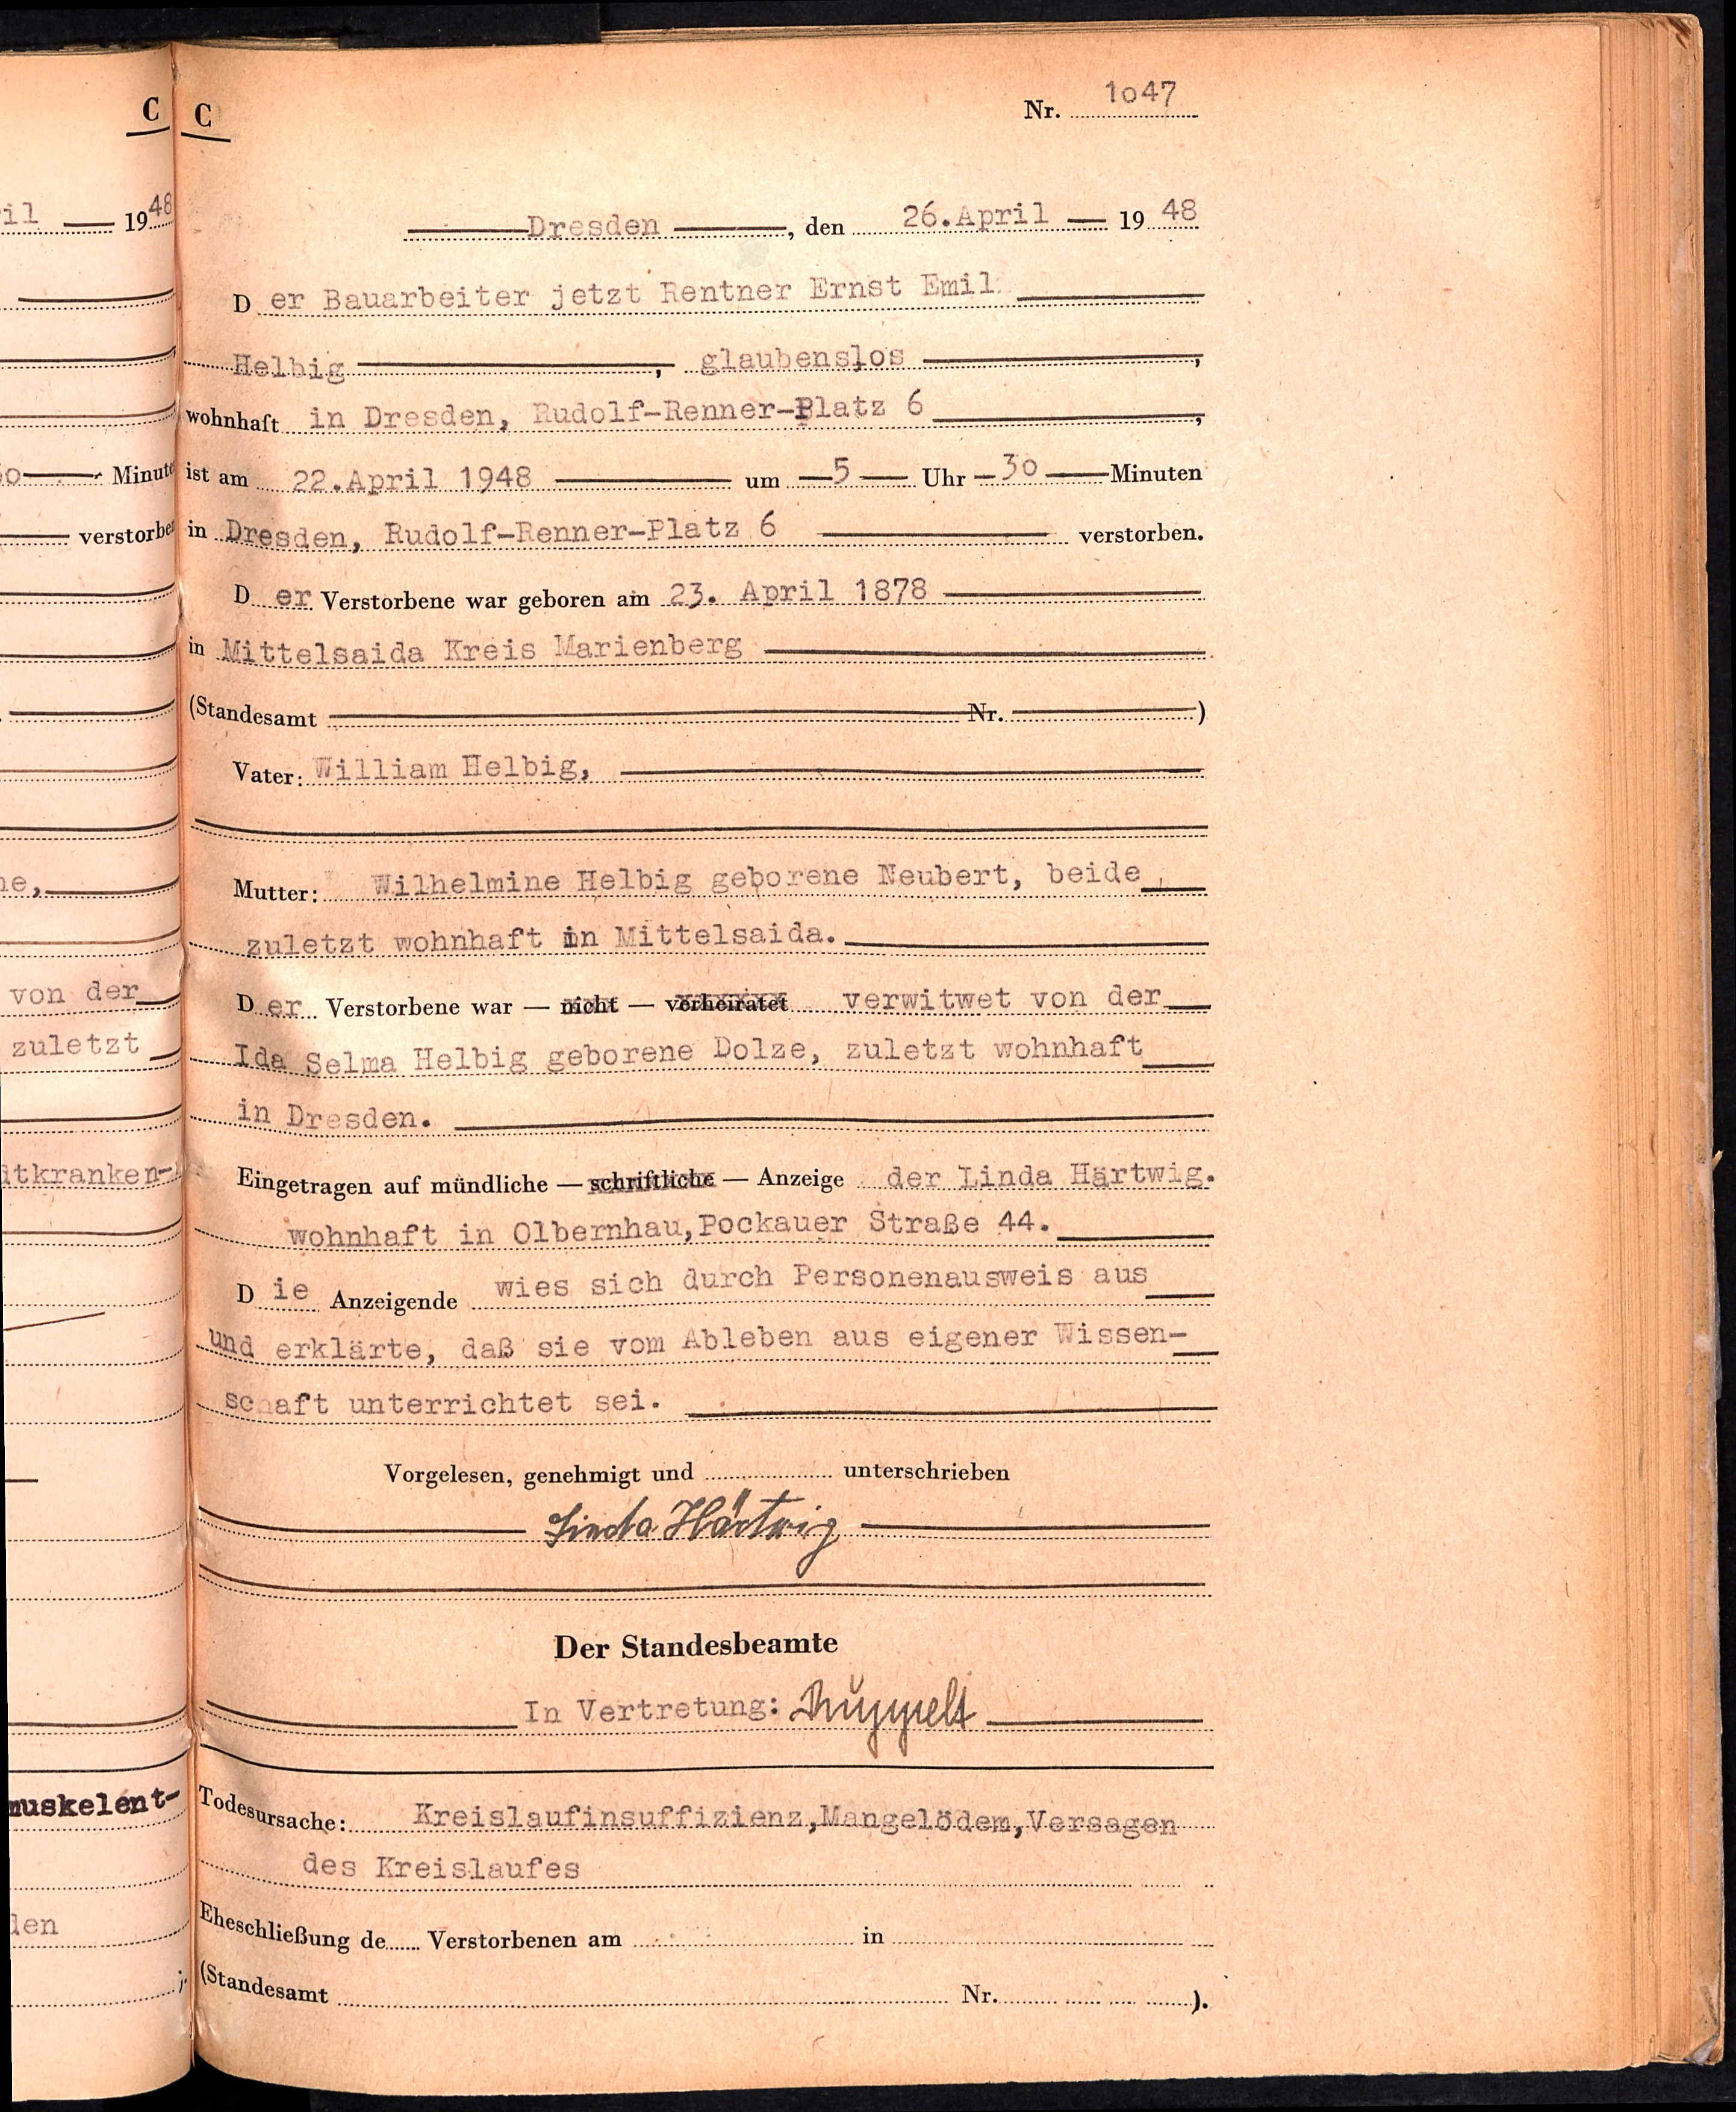 C
il 19 48
Minute
verstorben
ne,
von der
zuletzt
dtkranken-
muskelent-
den
C
Nr. 1o47
Dresden, den 26.April 19 48
Der Bauarbeiter jetzt Rentner Ernst Emil
Helbig, glaubenslos,
wohnhaft in Dresden, Rudolf-Renner-Platz 6,
ist am 22.April 1948 um 5 Uhr 3o Minuten
in Dresden, Rudolf-Renner-Platz 6 verstorben.
Der Verstorbene war geboren am 23. April 1878
in Mittelsaida Kreis Marienberg
(Standesamt Nr. )
Vater: William Helbig,
Mutter: Wilhelmine Helbig geborene Neubert, beide
zuletzt wohnhaft in Mittelsaida.
Der Verstorbene war — nicht — verheiratet verwitwet von der
Ida Selma Helbig geborene Dolze, zuletzt wohnhaft
in Dresden.
Eingetragen auf mündliche — schriftliche — Anzeige der Linda Härtwig.
wohnhaft in Olbernhau,Pockauer Straße 44.
Die Anzeigende wies sich durch Personenausweis aus
und erklärte, daß sie vom Ableben aus eigener Wissen-
schaft unterrichtet sei.
Vorgelesen, genehmigt und unterschrieben
Linda Härtwig
Der Standesbeamte
In Vertretung: Ruppelt
Todesursache: Kreislaufinsuffizienz,Mangelödem,Versagen
des Kreislaufes
Eheschließung de Verstorbenen am in
(Standesamt Nr. ).